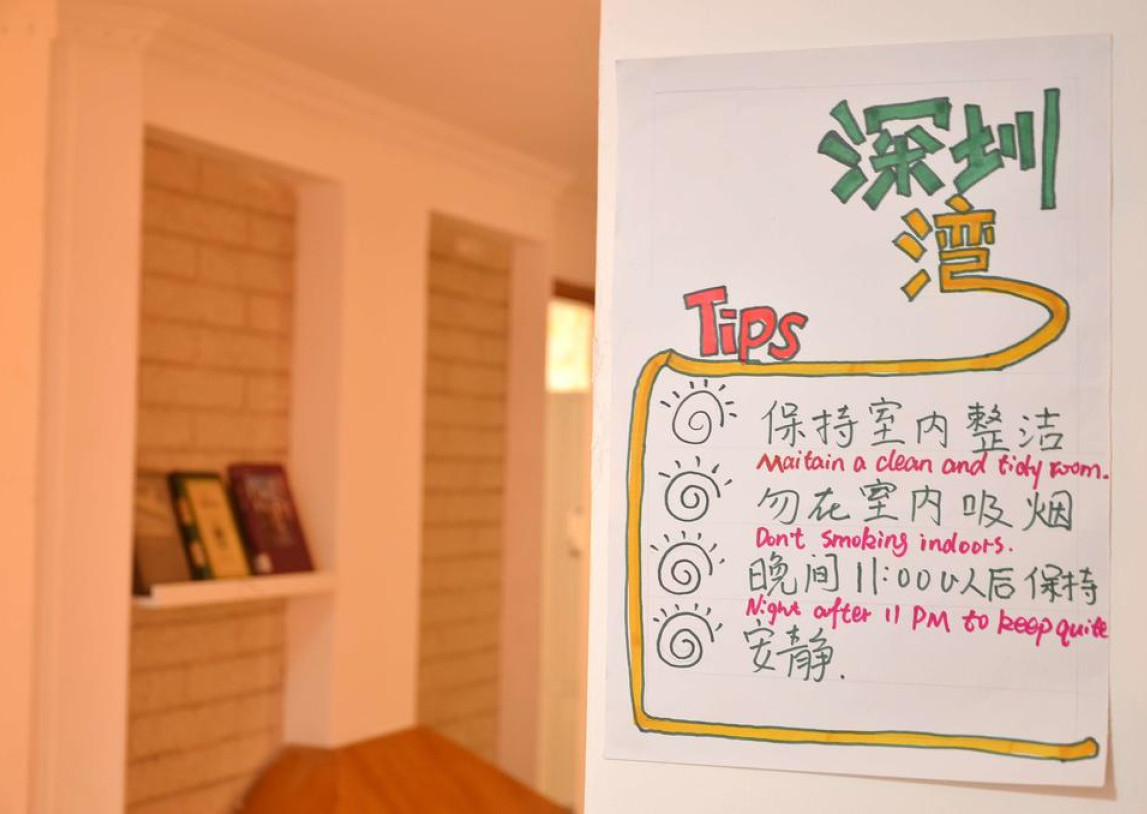 深圳
湾
Tips
保持室内整洁
Maitain a clean and tidy room.
勿在室内吸烟
Don't smoking indoors.
晚间11:00以后保持
Night after 11 PM to keep quite
安静.